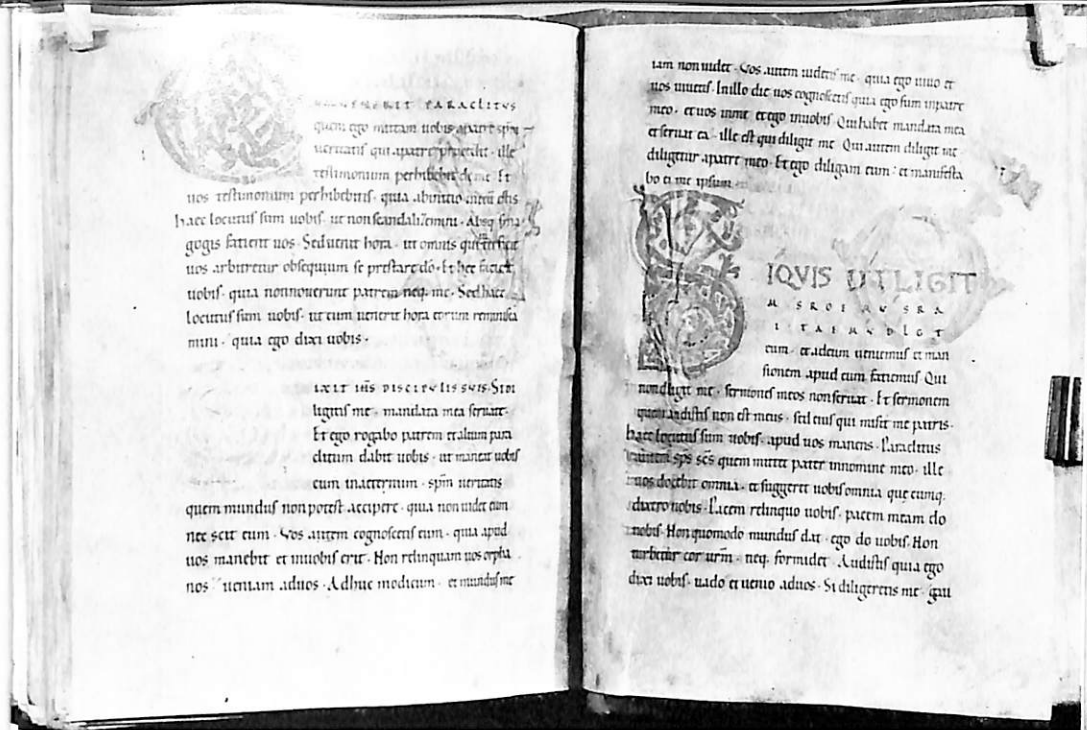 UENERIT PARACLITVS
quem ego mittam uobis apatre spm
ueritatis qui apatre procedit · ille
testimonium perhibebit de me · Et
uos testimonium perhibebitis · quia abinitio mecū estis
haec locutus sum uobis · ut non scandalizemini · Absq; sina
gogis facient uos · Sed uenit hora · ut omnis qui
uos arbitretur obsequium se prestare dō · Et hec facient
uobis · quia nonnouerunt patrem neq; me · Sed haec
locutus sum uobis · ut cum uenerit hora eorum reminisca
mini · quia ego dixi uobis ·
IXIT IHS DISCIPULIS SVIS · Sidi
ligitis me · mandata mea seruate ·
Et ego rogabo patrem et alium para
clitum dabit uobis · ut maneat uobis
cum inaeternum · spm ueritatis
quem mundus non potest accipere · quia non uidet eum
nec scit eum · Vos autem cognoscetis eum · quia apud
uos manebit et inuobis erit · Non relinquam uos orpha
nos ueniam aduos · Adhuc modicum · et mundus me
iam non uidet · Vos autem uidetis me · quia ego uiuo et
uos uiuetis · Inillo die uos cognoscetis quia ego sum inpatre
meo · et uos inme et ego inuobis · Qui habet mandata mea
et seruat ea · ille est qui diligit me · Qui autem diligit me ·
diligetur apatre meo · Et ego diligam eum · et manifesta
bo ei me ipsum
SIQVIS DILIGIT
M S R O E M U S R A
I T A E M U D L G T
eum · et adeum ueniemus et man
sionem apud eum faciemus Qui
non diligit me · sermones meos non seruat · Et sermonem
quem audistis non est meus · sed eius qui misit me patris ·
haec locutus sum uobis · apud uos manens · Paraclitus
autem sps scs quem mittet pater innomine meo · ille
uos docebit omnia · et suggeret uobis omnia que cumq;
dixero uobis · Pacem relinquo uobis · pacem meam do
uobis · Non quomodo mundus dat · ego do uobis · Non
turbetur cor urm · neq; formidet · Audistis quia ego
dixi uobis · uado et uenio aduos · Si diligeretis me · gau